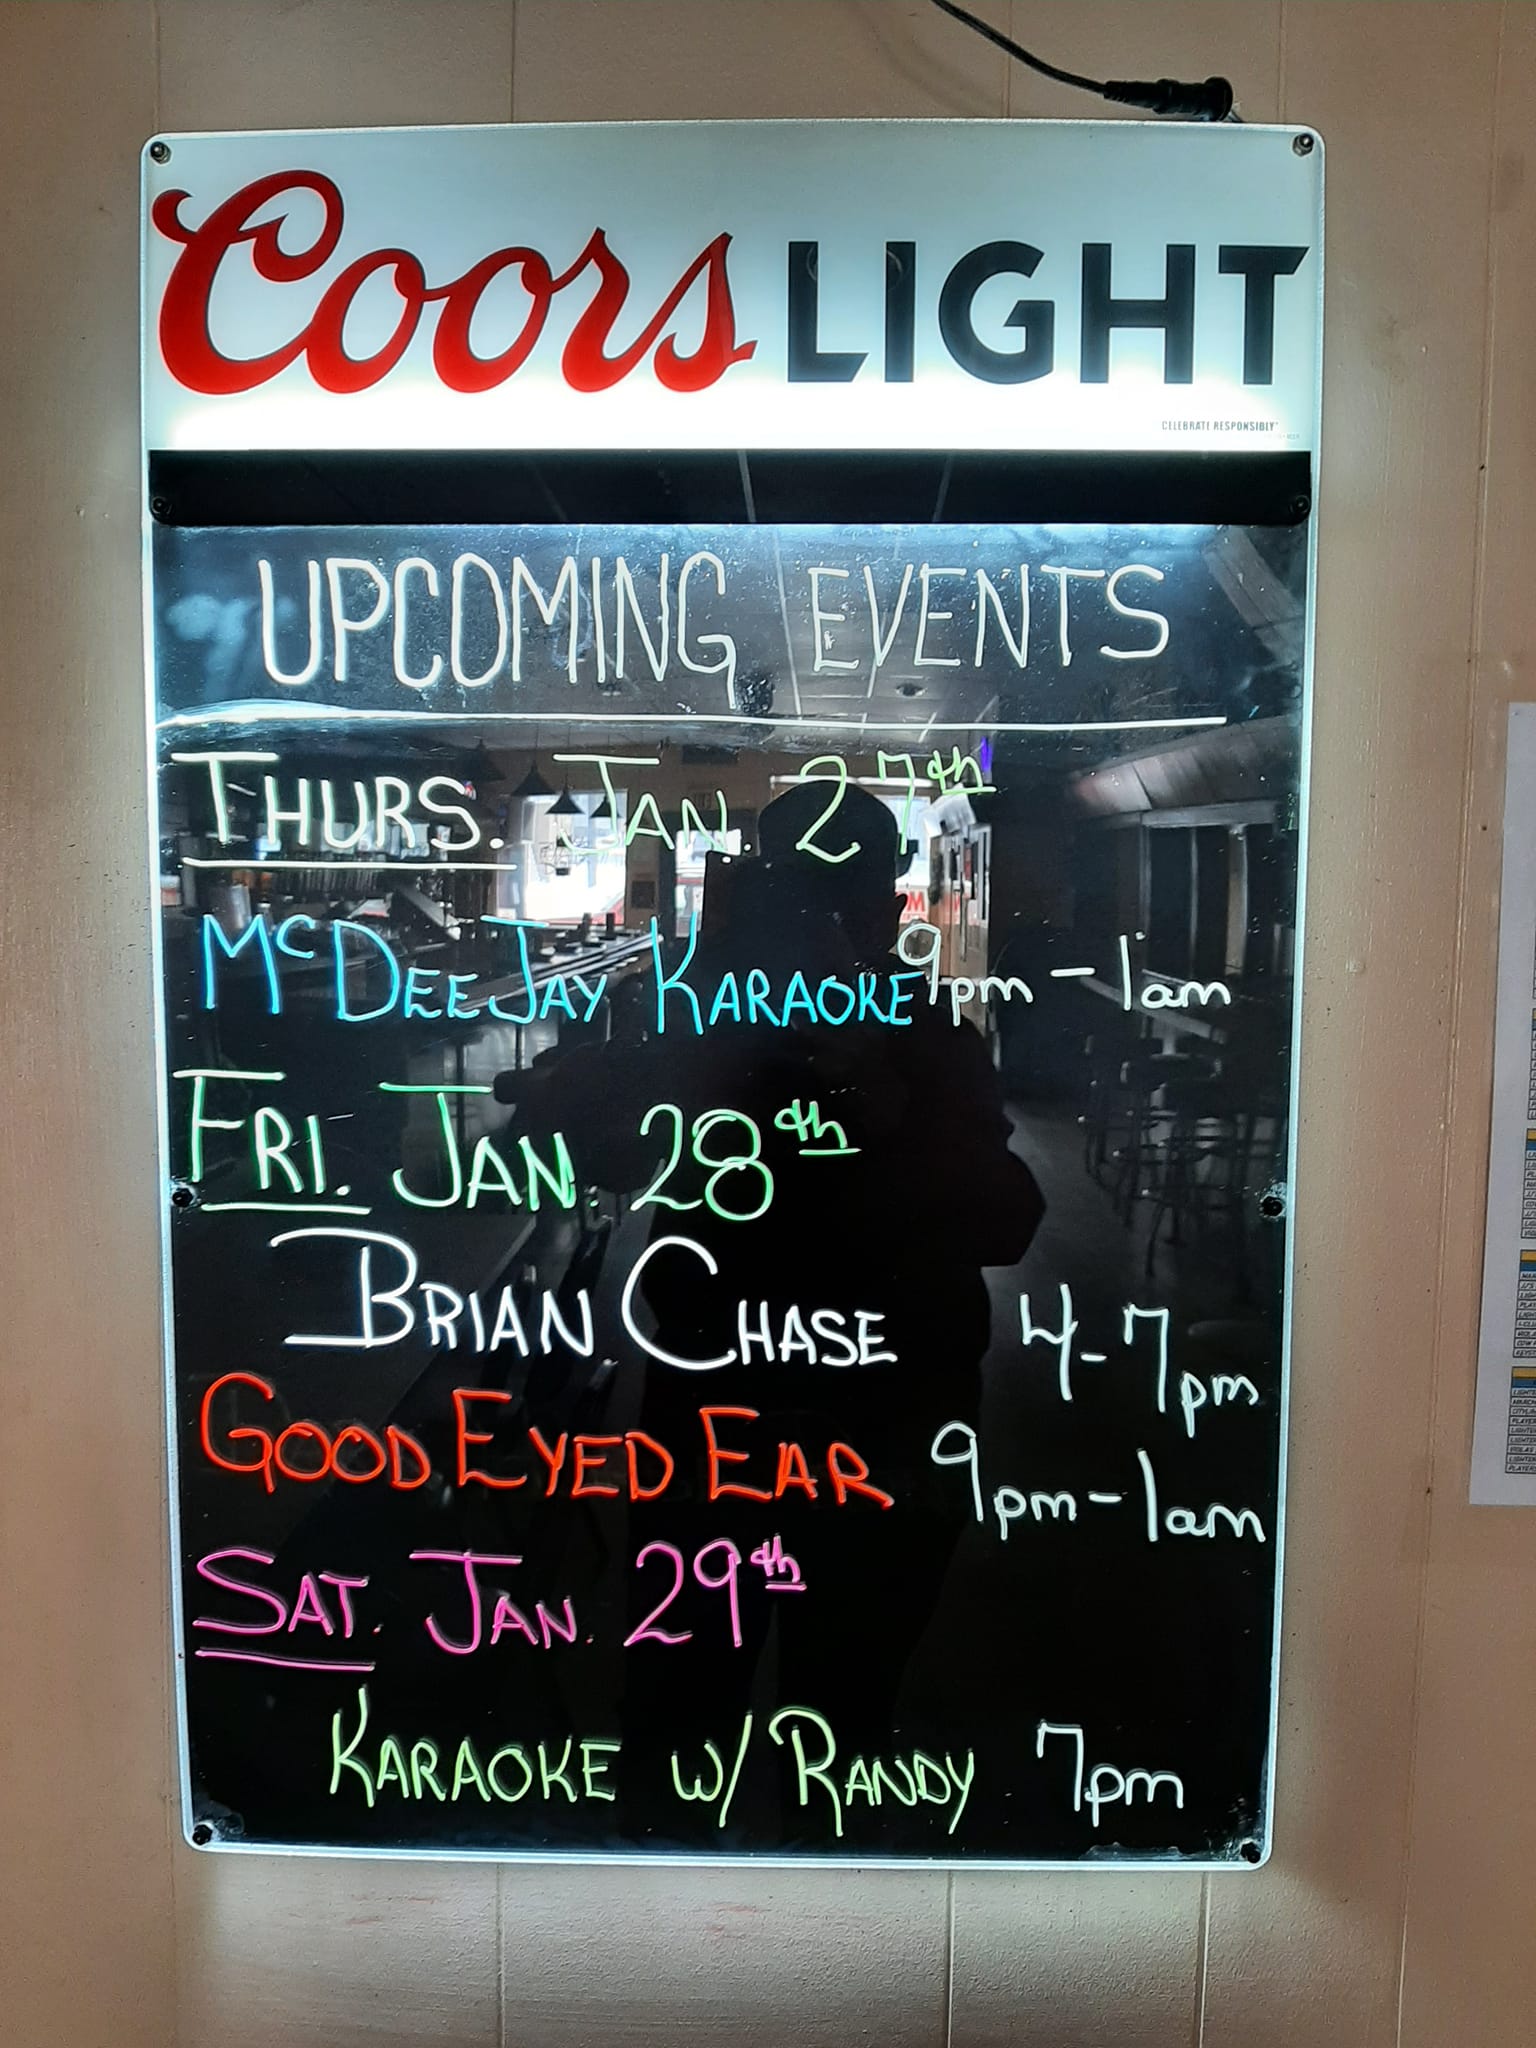 Coors LIGHT
CELEBRATE RESPONSIBLY
UPCOMING EVENTS
THURS. JAN. 27th
McDEEJAY KARAOKE 9pm - 1am
FRI. JAN. 28th
BRIAN CHASE 4-7pm
GOOD EYED EAR 9pm-1am
SAT. JAN. 29th
KARAOKE W/ RANDY 7pm